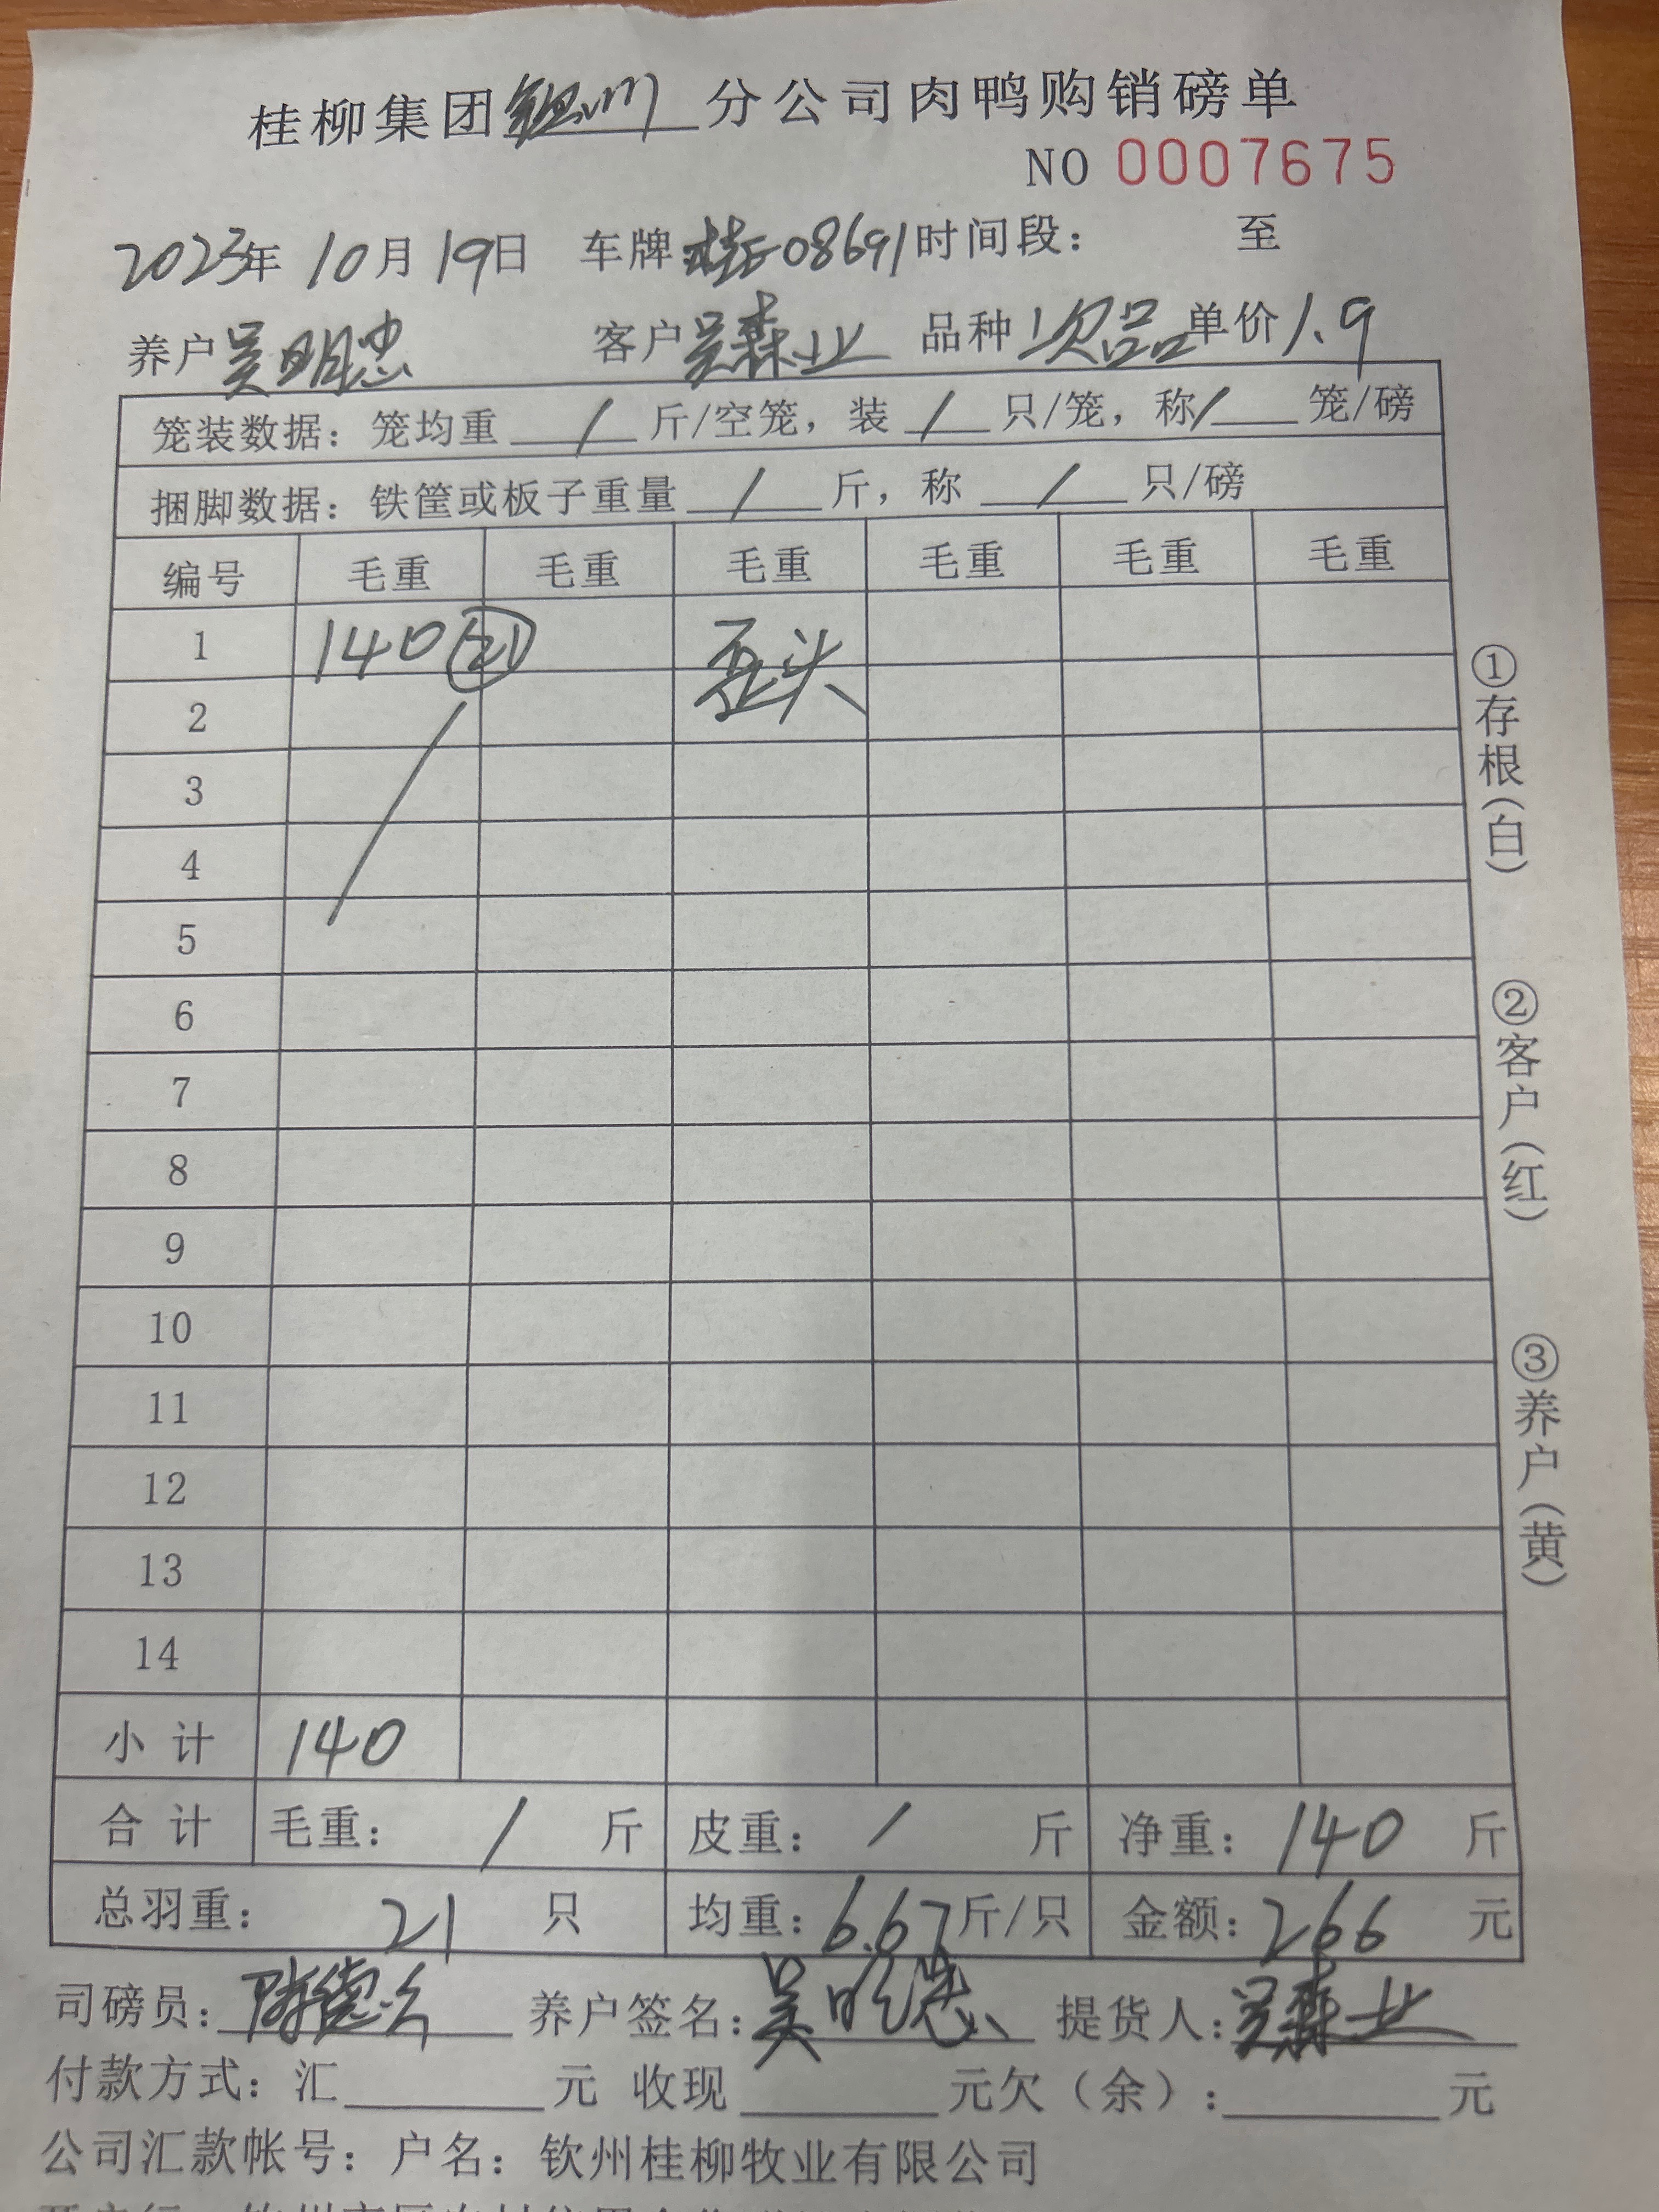 桂柳集团钦州分公司肉鸭购销磅单
NO 0007675
2023年 10月 19日 车牌 桂E08691 时间段： 至
养户 吴明忠 客户 吴森业 品种 次品 单价 1.9
笼装数据：笼均重 / 斤/空笼，装 / 只/笼，称 / 笼/磅
捆脚数据：铁筐或板子重量 / 斤，称 / 只/磅
编号 毛重 毛重 毛重 毛重 毛重 毛重
1 140 (21) 歪头
2
3
4
5
6
7
8
9
10
11
12
13
14
小计 140
合计 毛重： / 斤 皮重： / 斤 净重：140 斤
总羽重： 21 只 均重：6.67 斤/只 金额：266 元
司磅员： 养户签名：吴明忠 提货人：吴森业
付款方式：汇 元 收现 元欠（余）： 元
公司汇款帐号：户名：钦州桂柳牧业有限公司
①存根（白）
②客户（红）
③养户（黄）